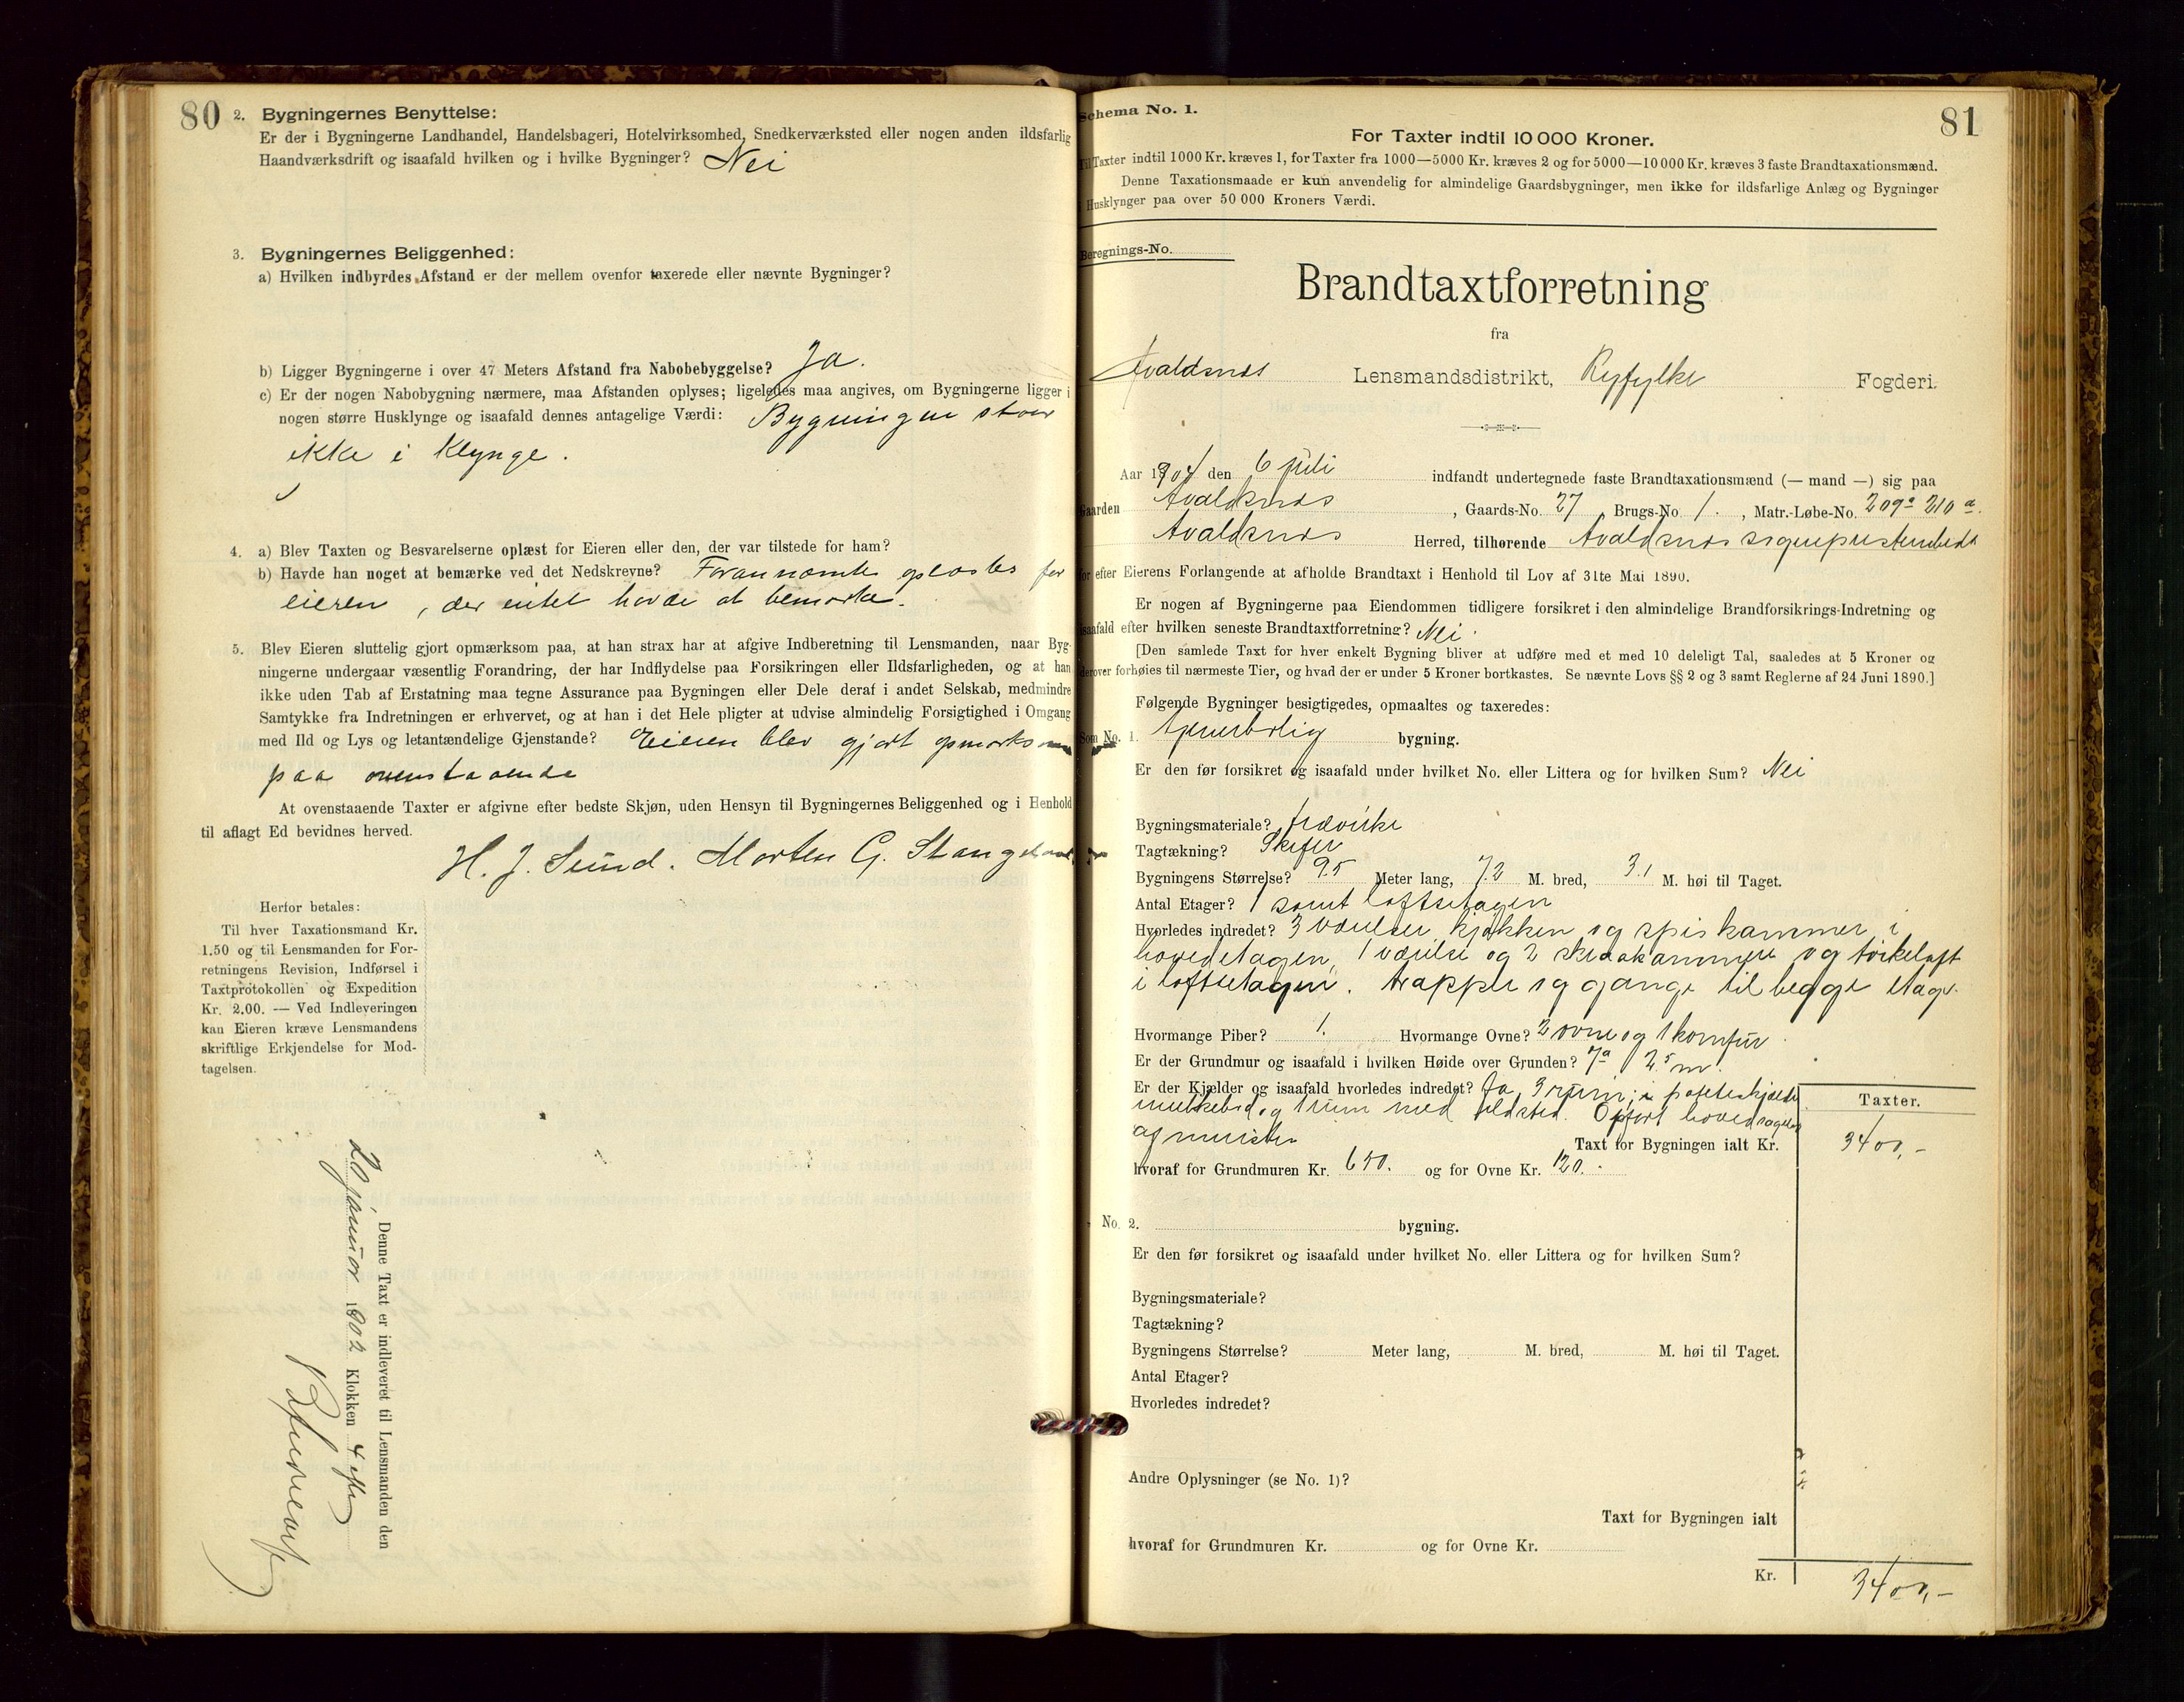 80
2. Bygningernes Benyttelse:
Er der i Bygningerne Landhandel, Handelsbageri, Hotelvirksomhed, Snedkerværksted eller nogen anden ildsfarlig
Haandværksdrift og isaafald hvilken og i hvilke Bygninger? Nei
3. Bygningernes Beliggenhed:
a) Hvilken indbyrdes Afstand er der mellem ovenfor taxerede eller nævnte Bygninger?
b) Ligger Bygningerne i over 47 Meters Afstand fra Nabobebyggelse? Ja.
c) Er der nogen Nabobygning nærmere, maa Afstanden oplyses; ligeledes maa angives, om Bygningerne ligger i
nogen større Husklynge og isaafald dennes antagelige Værdi: Bygningen staar
ikke i Klynge.
4. a) Blev Taxten og Besvarelserne oplæst for Eieren eller den, der var tilstede for ham?
b) Havde han noget at bemærke ved det Nedskrevne? Forannævnte oplæstes for
eieren, der intet havde at bemærke.
5. Blev Eieren sluttelig gjort opmærksom paa, at han strax har at afgive Indberetning til Lensmanden, naar Byg-
ningerne undergaar væsentlig Forandring, der har Indflydelse paa Forsikringen eller Ildsfarligheden, og at han
ikke uden Tab af Erstatning maa tegne Assurance paa Bygningen eller Dele deraf i andet Selskab, medmindre
Samtykke fra Indretningen er erhvervet, og at han i det Hele pligter at udvise almindelig Forsigtighed i Omgang
med Ild og Lys og letantændelige Gjenstande? Eieren blev gjort opmærksom
paa ovenstaaende
At ovenstaaende Taxter er afgivne efter bedste Skjøn, uden Hensyn til Bygningernes Beliggenhed og i Henhold
til aflagt Ed bevidnes herved.
H. J. Sund. Morten G. Stangeland
Herfor betales:
Til hver Taxationsmand Kr.
1.50 og til Lensmanden for For-
retningens Revision, Indførsel i
Taxtprotokollen og Expedition
Kr. 2.00. — Ved Indleveringen
kan Eieren kræve Lensmandens
skriftlige Erkjendelse for Mod-
tagelsen.
Denne Taxt er indleveret til Lensmanden den
20 januar 1902 Klokken 4 eftm
81
Schema No. 1.
For Taxter indtil 10 000 Kroner.
Til Taxter indtil 1000 Kr. kræves 1, for Taxter fra 1000—5000 Kr. kræves 2 og for 5000—10 000 Kr. kræves 3 faste Brandtaxationsmænd.
Denne Taxationsmaade er kun anvendelig for almindelige Gaardsbygninger, men ikke for ildsfarlige Anlæg og Bygninger
i Husklynger paa over 50 000 Kroners Værdi.
Beregnings-No.
Brandtaxtforretning
fra
Avaldsnes Lensmandsdistrikt, Ryfylke Fogderi.
Aar 1904 den 6 juli indfandt undertegnede faste Brandtaxationsmænd (— mand —) sig paa
Gaarden Avaldsnes, Gaards-No. 27, Brugs-No. 1., Matr.-Løbe-No. 209a 210a.
Avaldsnes Herred, tilhørende Avaldsnes sogneprestembede
for efter Eierens Forlangende at afholde Brandtaxt i Henhold til Lov af 31te Mai 1890.
Er nogen af Bygningerne paa Eiendommen tidligere forsikret i den almindelige Brandforsikrings-Indretning og
isaafald efter hvilken seneste Brandtaxtforretning? Nei.
[Den samlede Taxt for hver enkelt Bygning bliver at udføre med et med 10 deleligt Tal, saaledes at 5 Kroner og
derover forhøies til nærmeste Tier, og hvad der er under 5 Kroner bortkastes. Se nævnte Lovs §§ 2 og 3 samt Reglerne af 24 Juni 1890.]
Følgende Bygninger besigtigedes, opmaaltes og taxeredes:
Som No. 1. bygning.
Er den før forsikret og isaafald under hvilket No. eller Littera og for hvilken Sum? Nei
Bygningsmateriale? trævirke
Tagtækning? Skifer
Bygningens Størrelse? 9.5 Meter lang, 7.2 M. bred, 3.1 M. høi til Taget.
Antal Etager? 1 samt loftsetagen
Hvorledes indredet? 3 værelser kjøkken og spiskammer i
hovedetagen, 1 værelse og 2 og tørkeloft
i loftsetagen. trapper og gange til begge etager.
Hvormange Piber? 1. Hvormange Ovne? 2 ovne og 1 komfur
Er der Grundmur og isaafald i hvilken Høide over Grunden? Ja 2.5 m.
Er der Kjælder og isaafald hvorledes indredet? Ja, 3 rum; potteskjælder
melkebod og 1 rum med ildsted. Opført hovedsagelig
af mursten
Taxter.
Taxt for Bygningen ialt Kr. 3400,-
hvoraf for Grundmuren Kr. 650. og for Ovne Kr. 120.
No. 2. bygning.
Er den før forsikret og isaafald under hvilket No. eller Littera og for hvilken Sum?
Bygningsmateriale?
Tagtækning?
Bygningens Størrelse? Meter lang, M. bred, M. høi til Taget.
Antal Etager?
Hvorledes indredet?
Andre Oplysninger (se No. 1)?
Taxt for Bygningen ialt
hvoraf for Grundmuren Kr. og for Ovne Kr.
Kr. 3400,-